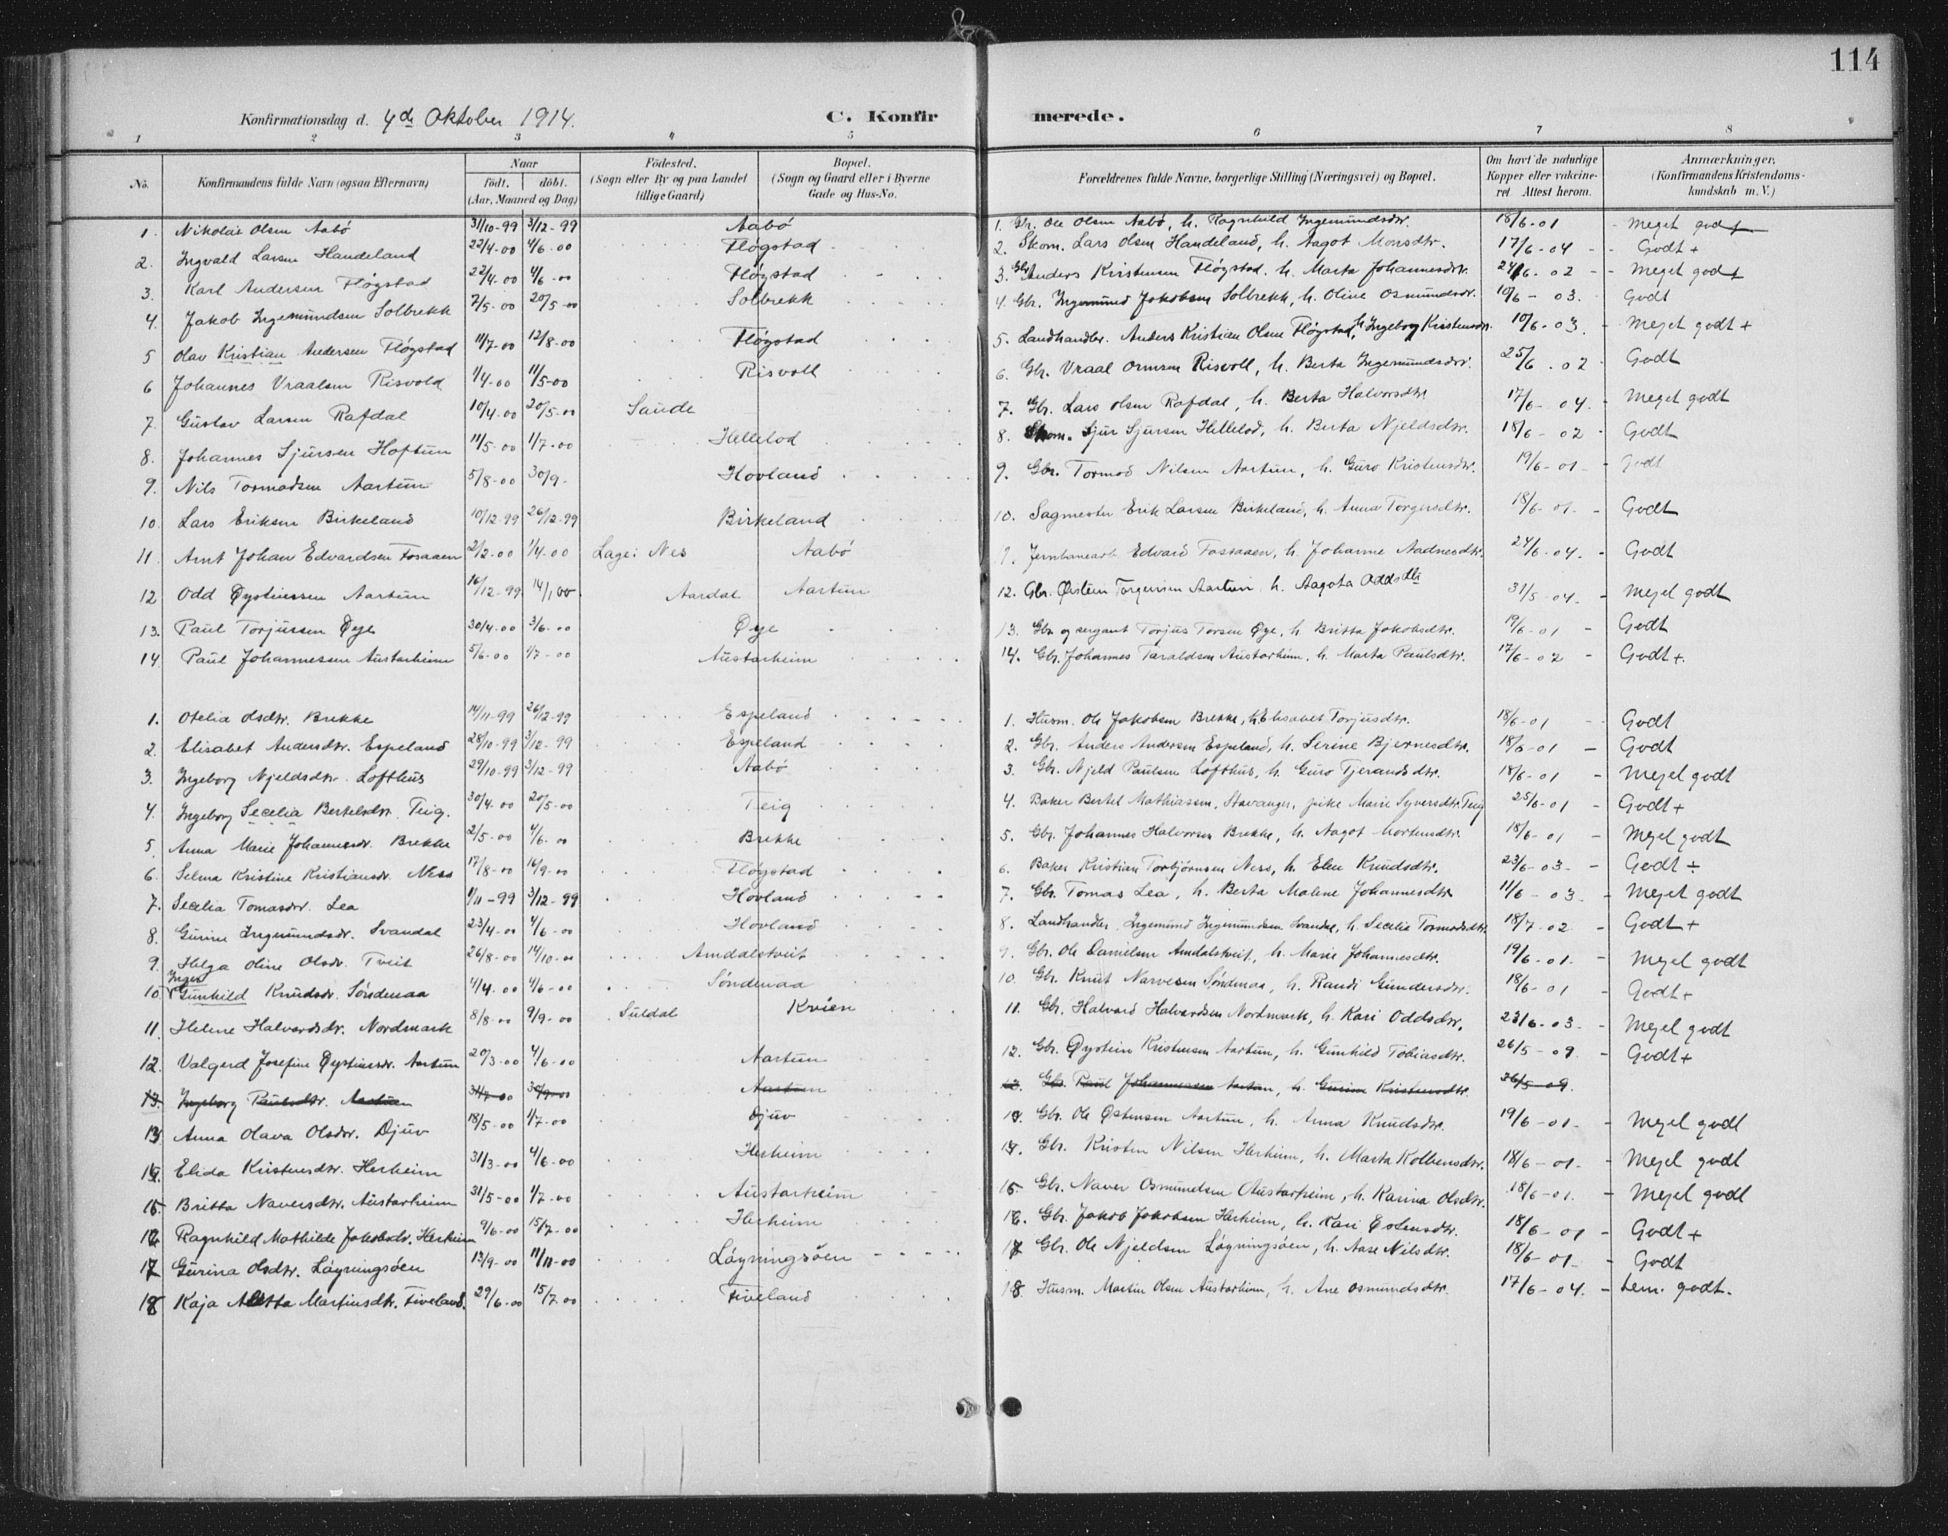 114
Konfirmationsdag d. 4de Oktober 1914. C. Konfirmerede.
1 2 3 4 5 6 7 8
No. Konfirmandens fulde Navn (ogsaa Efternavn) Naar født, døbt. (Aar, Maaned og Dag) Fødested. (Sogn eller By og paa Landet tillige Gaard) Bopæl. (Sogn og Gaard eller i Byerne Gade og Hus-No. Forældrenes fulde Navne, borgerlige Stilling (Næringsvei) og Bopæl. Om havt de naturlige Kopper eller vaccineret. Attest herom. Anmærkninger. (Konfirmandens Kristendomskundskab m. V.)
1. Nikolai Olsen Aabö 31/10-99 3/12-99 Aabö 1. Gbr. Ole Olsen Aabö, h. Ragnhild Ingemundsdtr. 18/6-01 - Meget godt
2. Ingvald Larsen Handeland 22/4-00 4/6-00 Fløgstad 2. Skom. Lars Olsen Handeland, h. Aagot Monsdtr. 17/6-04 - Godt +
3. Karl Andersen Fløgstad 22/4-00 4/6-00 Fløgstad 3. Gbr. Anders Kristensen Fløgstad, h. Marta Johannesdtr. 24/6-02 - Meget godt
4. Jakob Ingemundsen Solbrekk 7/5-00 20/5-00 Solbrekk 4. Gbr. Ingemund Jakobsen Solbrekk, h. Oline Osmundsdr. 10/6-03. Godt
5 Olav Kristian Andersen Fløgstad 11/7-00 12/8-00 Fløgstad 5. Landhandler. Anders Kristian Olsen Fløgstad, h. Ingeborg Kristensdr. 10/6-03. - Meget godt +
6 Johannes Vraalsen Risvold 1/4-00 11/5-00 Risvoll 6. Gbr. Vraal Ormsen Risvoll, h. Berta Ingemundsdtr. 25/6-02 Godt
7. Gustav Larsen Rafdal 10/4-00 20/5-00 Saude 7. Gbr. Lars Olsen Rafdal, h. Berta Halvorsdtr. 17/6-04. - Meget godt
8. Johannes Sjursen Hoftun 11/5-00 1/7-00 Hellelod 8. Skom. Sjur Sjursen Hellelod, h. Berta Njeldsdtr. 18/6-02 - Godt
9. Nils Tormodsen Aartun 5/8-00 30/9- Hovland 9. Gbr. Tormod Nilsen Aartun, h. Guro Kristensdtr. 19/6-01- Godt
10. Lars Eriksen Birkeland 10/12-99 26/12-99 Birkeland 10. Sagmester Erik Larsen Birkeland, h. Anna Torgersdtr. 18/6-01. - Godt
11. Arnt Johan Edvardsen Fosaaen 2/12-00 1/4-00 Nes Aabö Jernbanearb. Edvard Fossaaen, h. Johanne Aadnesdtr. 24/6-04. - Godt
12 Odd Øystinssen Aartun 16/12-99 14/1 00 Aardal Aartun 12. Gbr. Østein Torgersen Aartun, h. Aagota Oddsdtr 31/5-04. - Meget godt
13. Paul Torjussen Øye 30/4-00 3/6-00 Øye 13. Gbr og sergant Torjus Torsen Øye, h. Britta Jakobsdtr. 19/6-01 - Godt
14. Paul Johannessen Austarheim 5/6-00 1/7-00 Austarheim 14. Gbr. Johannes Taraldsen Austarheim, h. Marta Paulsdtr. 17/6-02 - Godt +.
1. Otelia Olsdtr. Brekke 14/11-99 26/12-99 Espeland 1. Husm. Ole Jakobsen Brekke, h. Elisabet Torjusdtr. 18/6-01 - Godt
2. Elisabet Andersdtr. Espeland 28/10-99 3/12-99 Espeland 2. Gbr. Anders Andersen Espeland, h. Serine Bjernesdtr. 18/6-01 - Godt
3. Ingeborg Njeldsdtr. Lofthus 29/10-99 3/12-99 Aabö 3. Gbr. Njeld Paulsen Lofthus, h. Guro Tjerandsdtr. 18/6-01 - Meget godt
4. Ingeborg Secelia Bertelsdtr. Teig. 30/4.00 20/5-00 Teig 4. Baker Bertel Mathiassen, Stavanger, pike Marie Syversdtr. Teig 25/6-01 - Godt +
5. Anna Marie Johannesdr. Brekke 2/5-00 4/6-00 Brekke 5. Gbr. Johannes Halvorsen Brekke, h. Aagot Mortensdtr. 18/6-01 - Meget godt
6. Selma Kristine Kristiansdr. Ness 17/8-00 16/9-00 Fløgstad 6. Baker Kristian Torbjørnsen Ness, h. Elen Knudsdtr. 23/6-03. - Godt ÷
7. Secelia Tomasdr. Lea 1/11-99 3/12-99 Hovland 7. Gbr. Tomas Lea, h. Berta Malene Johannesdtr 11/6-03 - Meget godt
8. Gurine Ingemundsdr. Svandal 23/4-00 4/6-00 Hovland 8. Landhandler Ingemund Ingemundsen Svandal, h. Secelia Tormodsdtr. 18/7-02 - Godt +
9. Helga Oline Olsdr. Tveit 26/8-00 14/10-00 Amdalstveit 9. Gbr. Ole Danielsen Amdalstveit, h. Marie Johannesdtr. 19/6-01. - Meget godt
10. Inger Gunhild Knudsdr. Søndenaa 1/4.00 4/6-00 Søndenaa 10. Gbr. Knut Narvesen Søndenaa, h. Randi Gundersdtr. 18/6-01 - Godt +
11. Helene Halvardsdtr. Nordmark 8/8-00 9/9-00 Suldal Kvien 11. Gbr. Halvard Halvardsen Nordmark, h. Kari Oddsdtr. 23/6-03. - Meget godt
12. Valgerd Josefine Øystinsdr. Aartun 20/3-00 4/6-00 Aartun 12. Gbr. Øystein Kristensen Aartun, h. Gunhild Tobiasdtr. 26/5-09 - Godt +
13. Ingeborg Paulsdtr. Aartun Aartun Gbr. Paul Johannessen Aartun, h. Gurine Kristensdtr. 26/5-09.
13 Anna Olava Olsdr. Djuv 18/5-00 1/7-00 Djuv 13. Gbr. Ole Østensen Aartun, h. Anna Knudsdtr. 19/6-01- - Meget godt
14. Elida Kristensdtr. Herheim 31/3-00 4/6-00 Herheim 14. Gbr. Kristen Nilsen Herheim, h. Marta Kolbensdtr. 18/6-01. - Meget godt
15 Britta Naversdtr. Austarheim 31/5-00 1/7-00 Austarheim 15. Gbr. Naver Osmundsen Austarheim, h. Karina Olsdtr. 18/6-01. - Meget godt
16 Ragnhild Mathilde Jakobsdr. Herheim 9/6-00 15/7-00 Herheim 16. Gbr. Jakob Jakobsen Herheim, h. Kari Østensdtr. 18/6-01 - Godt +
17 Gurina Olsdtr. Løyningsøen 13/9-00 11/11-00 Løyningsøen 17 Gbr. Ole Njeldsen Løyningsøen, h. Aase Nilsdtr. 18/6-01. - Godt
18 Kaja Aletta Martinsdtr. Fiveland. 29/6-00 15/7 00 Fiveland 18. Husm. Martin Olsen Austarheim, h. Ane Osmundsdtr. 17/6-04. - tem. godt.